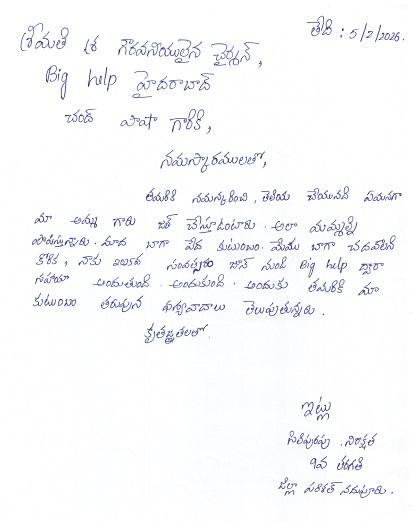 తేది : 5/2/2026.
శ్రీమతి శ్రీ గౌరవనీయులైన ఛైర్మన్,
Big help హైదరాబాద్
చాంద్ పాషా గారికి,
నమస్కారములతో,
తమరికి నమస్కరించి, తెలియ చేయునది ఏమనగా
మా అమ్మ గారు జాబ్ చేస్తూఉంటారు. అలా మమ్మల్ని
పోషిస్తున్నారు. మాది బాగా పేద కుటుంబం. మేము బాగా చదవాలని
కోరిక, నాకు సంవత్సరం జూన్ నుండి Big help ద్వారా
సహాయం అందుతుంది. అందుకుంది. అందుకు తమరికి మా
కుటుంబం తరుపున ధన్యవాదాలు తెలుపుతున్నారు.
కృతజ్ఞతలతో.
ఇట్లు
నిరీక్షత
9వ తరగతి
జిల్లా పరిశత్ నడుపూరు.